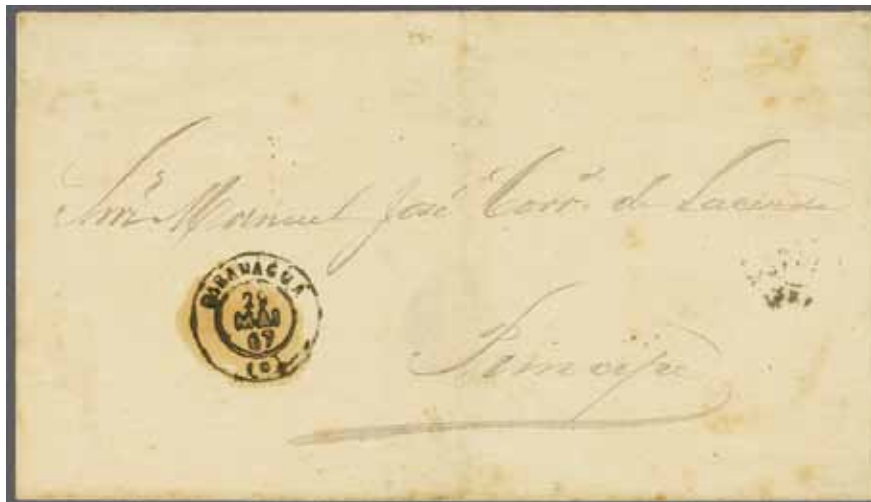 Snr. Manuel José Corr.ª de Lacerda
PARANAGUÁ
MAI
67
Principe